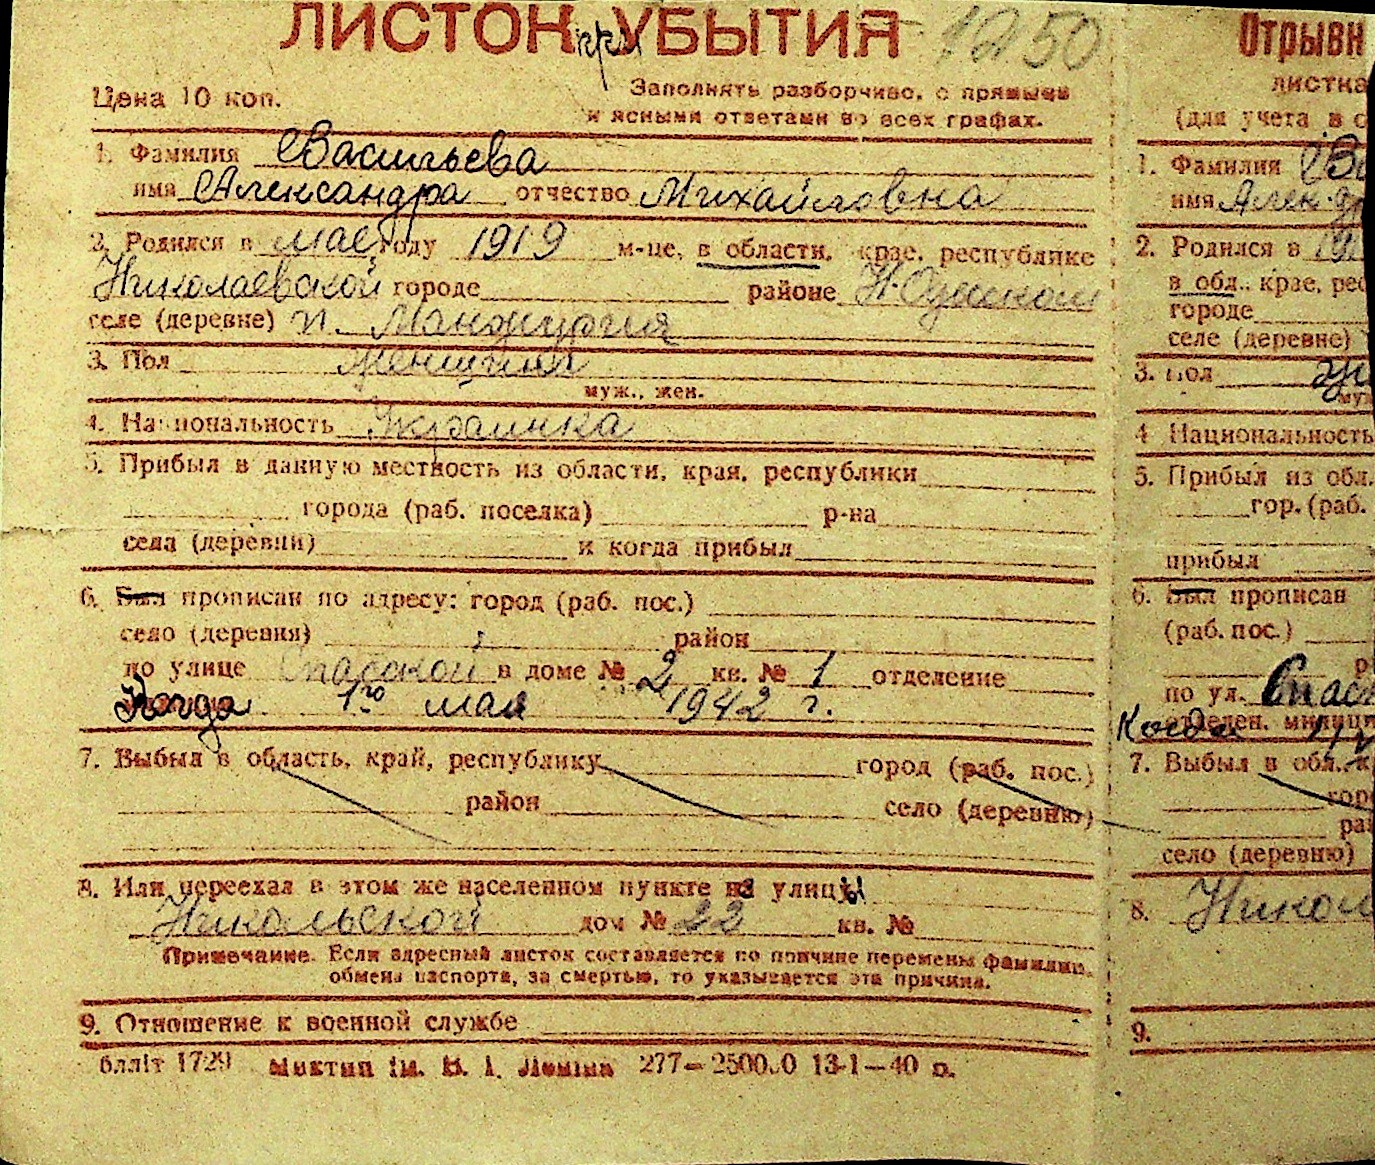 ЛИСТОК при УБЫТИЯ 1250
Цена 10 коп.
Заполнять разборчиво, с прямыми
и ясными ответами во всех графах.
1. Фамилия Васильева
имя Александра отчество Михайловна
2. Родился в мае году 1919 м-це, в области, крае, республике
Николаевской городе районе Н.Одесском
селе (деревне)
3. Пол женщина
муж., жен.
4. Национальность Украинка
5. Прибыл в данную местность из области, края, республики
города (раб. поселка) р-на
села (деревни) и когда прибыл
6. Был прописан по адресу: город (раб. пос.)
село (деревня) район
по улице Спасской в доме № 2 кв. № 1 отделение
Когда 1го мая 1942 г.
7. Выбыл в область, край, республику город (раб. пос.)
район село (деревню)
8. Или переехал в этом же населенном пункте из улицы
Никольской дом № 22 кв. №
Примечание. Если адресный листок составляется по причине перемены фамилии,
обмена паспорта, за смертью, то указывается эта причина.
9. Отношение к военной службе
блліт 1729 ім. В. І. Леніна 13-1—40 р.
Отрывн
листка
(для учета в с
1. Фамилия Ва
имя Алек-др
2. Родился в 191
в обл., крае, рес
городе
селе (деревне)
3. Пол
4 Национальность
5. Прибыл из обл.
гор. (раб.
прибыл
6. Был прописан
(раб. пос.)
р
по ул. Спас
Когда отделен. милици
7. Выбыл в обл., к
горо
рай
село (деревню)
8. Никол
9.